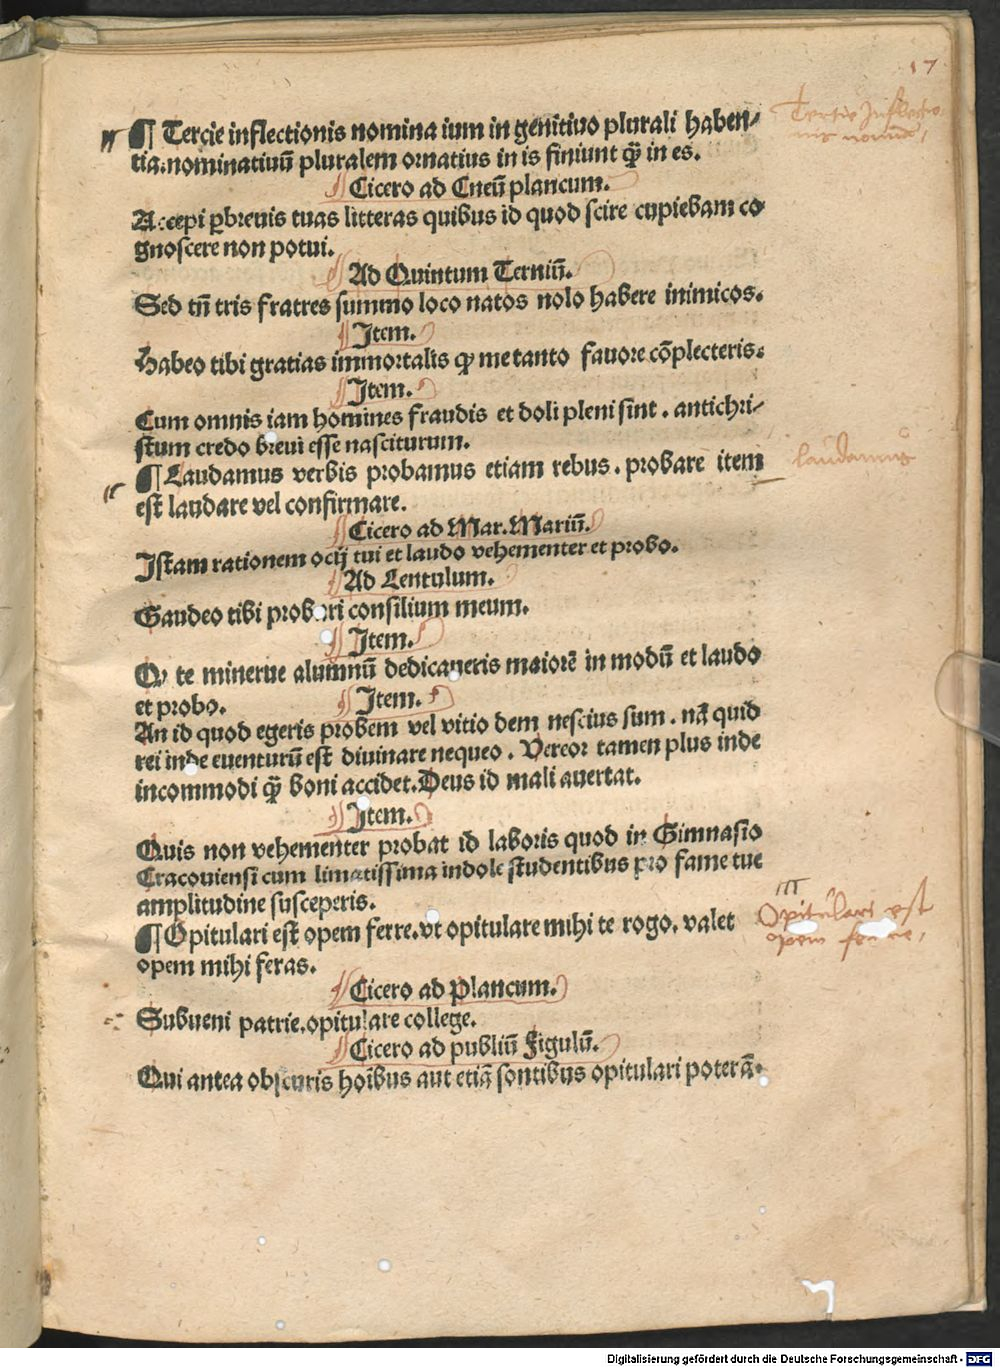 17
¶ Tercie inflectionis nomina ium in genitiuo plurali haben⸗
tia.nominatiuū pluralem ornatius in is finiunt q̄ꝫ in es.
Tertie Inflectio⸗
nis
¶ Cicero ad Cneū plancum.
Accepi ꝑbreuis tuas litteras quibus id quod scire cupiebam co
gnoscere non potui.
¶ Ad Quintum Terniū.
Sed tn̄ tris fratres summo loco natos nolo habere inimicos.
¶ Item.
Habeo tibi gratias immortalis ꝙ me tanto fauore cōplecteris.
¶ Item.
Cum omnis iam homines fraudis et doli pleni sint . antichri⸗
stum credo breui esse nasciturum.
¶ Laudamus verbis probamus etiam rebus . probare item
laudamus
est laudare vel confirmare.
¶ Cicero ad Mar. Mariū.
Istam rationem ocij tui et laudo vehementer et probo.
¶ Ad Lentulum.
Gaudeo tibi probari consilium meum.
¶ Item.
Ꝙ te minerue alumnū dedicaueris maiorē in modū et laudo
et probo.
¶ Item.
An id quod egeris probem vel vitio dem nescius sum . nā quid
rei inde euenturū est diuinare nequeo . Vereor tamen plus inde
incommodi q̄ꝫ boni accidet.Deus id mali auertat.
¶ Item.
Quis non vehementer probat id laboris quod in Gimnasio
Cracouiensi cum limatissima indole studentibus pro fame tue
amplitudine susceperis.
¶ Opitulari est opem ferre.vt opitulare mihi te rogo. valet
Opitulari est
opem ferre,
opem mihi feras.
¶ Cicero ad Plancum.
Subueni patrie.opitulare college.
¶ Cicero ad publiū Figulū.
Qui antea obscuris hoībus aut etiā sontibus opitulari poterā.
Digitalisierung gefördert durch die Deutsche Forschungsgemeinschaft - DFG